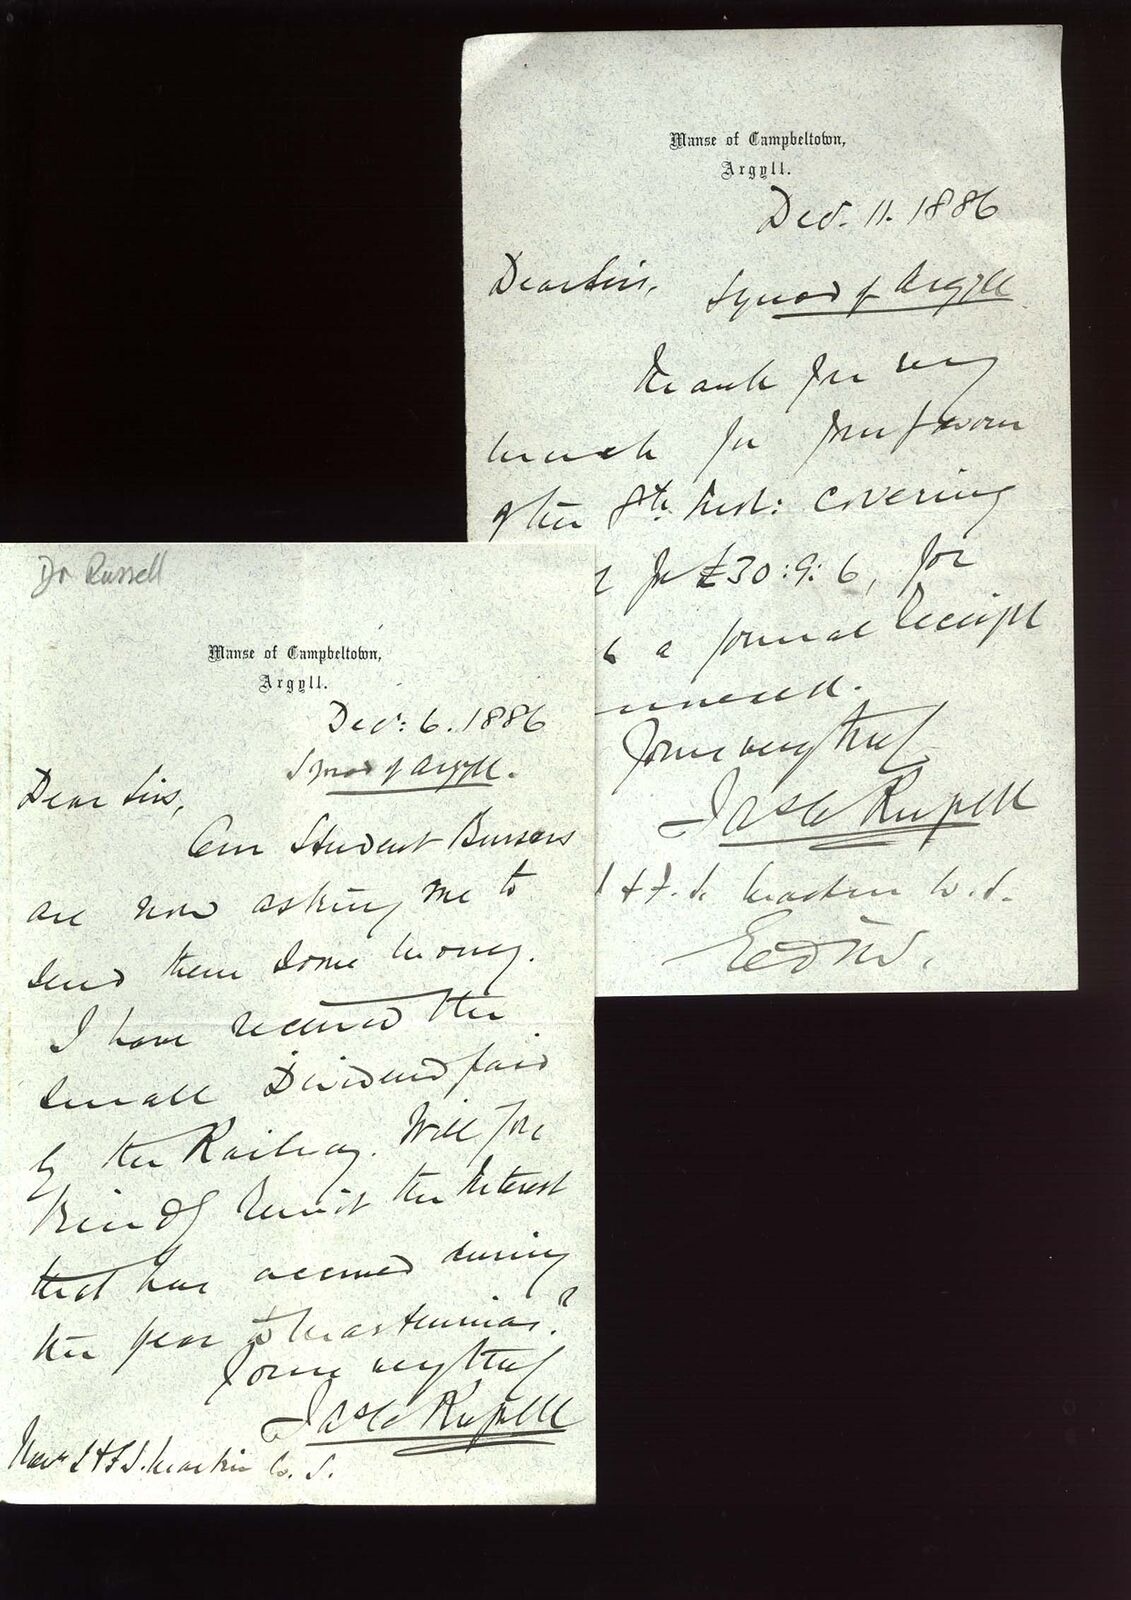 Manse of Campbeltown,
Argyll.
Dec. 11. 1886
Dear Sirs,
Synod of Argyll
thank you very
much for your favour
of the 8th Inst: covering
for £30:9:6, for
a formal receipt
Yours very truly
Jas C Russell
& F. J. Martin W. S.
Edinr.
Dr Russell
Manse of Campbeltown,
Argyll.
Decr: 6. 1886
Synod of Argyll.
Dear Sirs,
Our Student Bursars
are now asking me to
send them some money.
I have received the
small Dividend paid
by the Railway. Will you
kindly remit the Interest
that has accrued during
the year to Martinmas?
Yours very truly
Jas C Russell
Messrs J & F. J. Martin W. S.